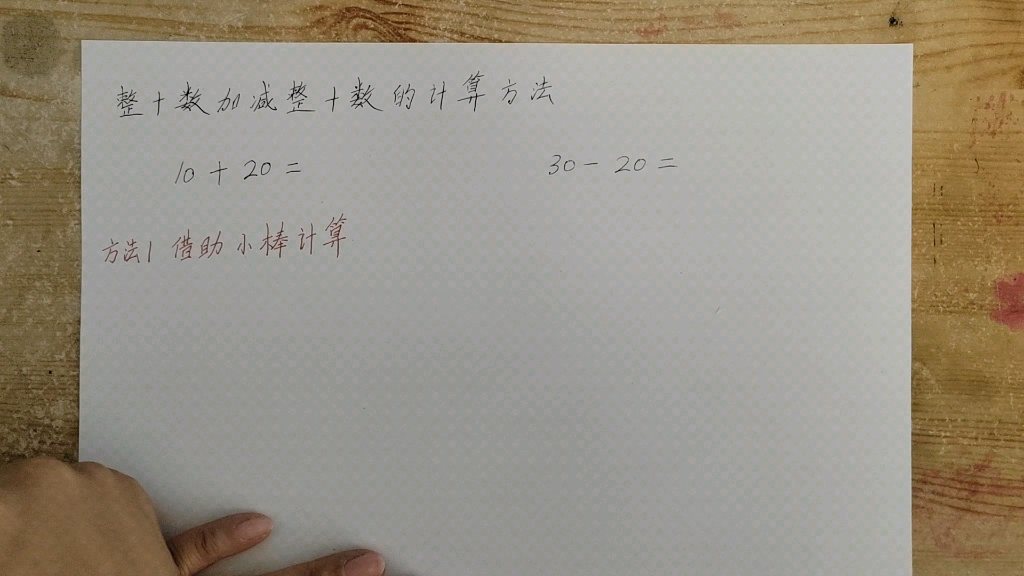 整十数加减整十数的计算方法
10 + 20 =
30 - 20 =
方法1 借助小棒计算